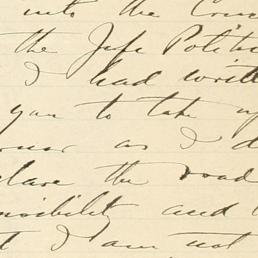 into the Cour
the Jefe Politi
I had writt
you to take u
ernor as I d
clare the road
nsibility and
t I am not